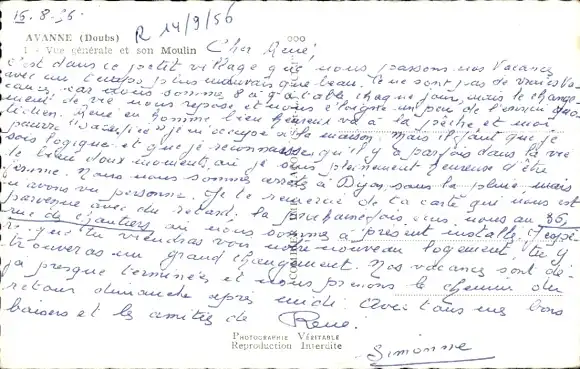 15.8.56.
R 14/9/56
AVANNE (Doubs)
1 - Vue générale et son Moulin
Cher René,
c'est dans ce petit village que nous passons nos vacances
avec un temps plus mauvais que beau. Ce ne sont pas de vraies va-
cances, car nous sommes 8 à 9 à table chaque jour, mais le change-
ment de vie nous repose et nous éloigne un peu de l'ennui quo-
tidien. René en homme bien heureux va à la pêche et moi
pauvre "sacrifiée" je m'occupe à la maison. Mais il faut que je
sois logique et que je reconnaisse qu'il y a parfois dans la vie
de bien doux moments, où je suis pleinement heureuse d'être
femme. Nous nous sommes arrêtés à Dijon sous la pluie mais
n'avons vu personne. Je te remercie de ta carte qui nous est
parvenue avec du retard. La prochaine fois, nous au 35,
rue de où nous sommes à présent installés. J'espè-
re que tu viendras voir notre nouveau logement, tu y
trouveras un grand changement. Nos vacances sont dé-
jà presque terminées et nous prenons le chemin du
retour dimanche après midi. Avec tous mes bons
baisers et les amitiés de René.
Simonne
PHOTOGRAPHIE VÉRITABLE
Reproduction Interdite